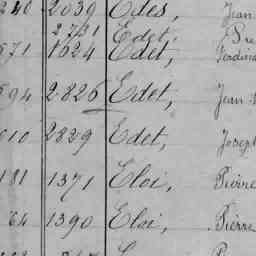 240 2039 Edes, Jean
2731 Edet,
571 1624 Edet, Ferdina
594 2826 Edet, Jean
610 2829 Edet, Joseph
181 1371 Eloi, Pierre
64 1390 Eloi, Pierre